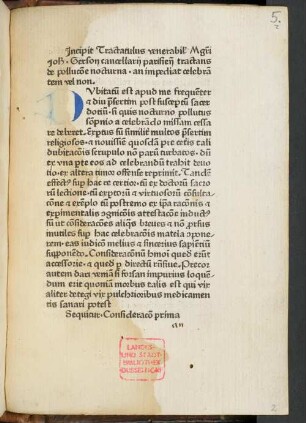 5.
Incipit Tractatulus venerabil' Mgri
Joh. Gerson cancellarij parisien tractans
de pollucōne nocturna · an impediat celebrā
tem vel non.
DVbitatū est apud me frequēter
⁊ diu p̄sertim post susceptū sacer
dotiū· si quis nocturno pollutus
sōpnio a celebracō missam cessa
re debret. Exptus sū similit' multos p̄sertim
religiosos· ⁊ nouissie quosdā pre ceteris tali
dubitacōis scrupulo nō parū turbatos· dū
ex vna pte eos ad celebrandū trahit deuo
tio· ex altera timor offense reprimit. Tandē
effect' sup hac re certior· tū ex doctorū sacro
rū lectione· tū exptorū ⁊ virtuosorū cōsulta
cōne ⁊ exēplo tū postremo ex ipa racōnis ⁊
expimentalis cognicōis attestacōe induct'
ut cōsideracōes aliqs breues ⁊ nō prsus
inutiles sup hac celebracōnis materia apone
rem· eas iudicio melius ⁊ sincerius sapiētiū
supponēdo. Consideracōnū hmoi quedā erūt
accessorie· ⁊ quedā p directū Precor
autem daci veniā si forsan impurius loquē
dum erit quoniā morbus talis est qui vir
aliter detegi vix pulchrioribus medicamen
tis sanari potest
Sequitur· Consideracō prima
LANDES-
UND STADT-
BIBLIOTHEK
DÜSSELDORF